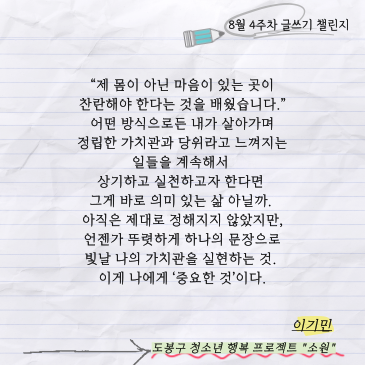 8월 4주차 글쓰기 챌린지
“제 몸이 아닌 마음이 있는 곳이
찬란해야 한다는 것을 배웠습니다.”
어떤 방식으로든 내가 살아가며
정립한 가치관과 당위라고 느껴지는
일들을 계속해서
상기하고 실천하고자 한다면
그게 바로 의미 있는 삶 아닐까.
아직은 제대로 정해지지 않았지만,
언젠가 뚜렷하게 하나의 문장으로
빛날 나의 가치관을 실현하는 것.
이게 나에게 ‘중요한 것’이다.
이기민
도봉구 청소년 행복 프로젝트 "소원"